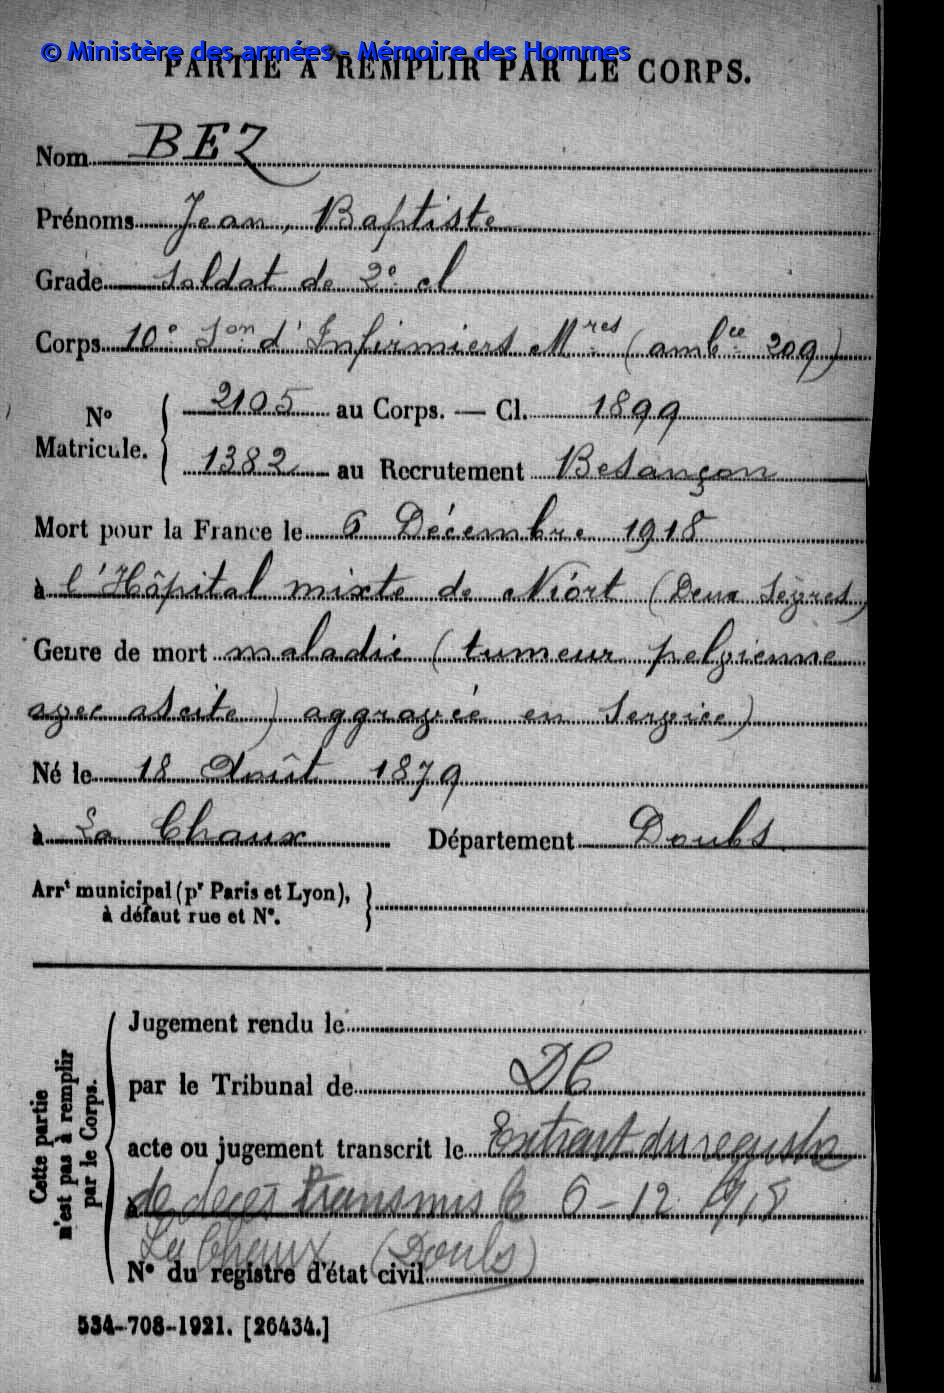 © Ministère des armées - Mémoire des Hommes
PARTIE À REMPLIR PAR LE CORPS.
Nom BEZ
Prénoms Jean, Baptiste
Grade Soldat de 2e cl
Corps 10e Son d'Infirmiers Mres (ambce 209)
N° Matricule. { 2105 au Corps. — Cl. 1899
1382 au Recrutement Besançon
Mort pour la France le 6 Décembre 1918
à l'Hôpital mixte de Niort (Deux Sèvres)
Genre de mort maladie (tumeur pelvienne
avec ascite) aggravée en service)
Né le 18 Août 1879
à La Chaux Département Doubs
Arrt municipal (pr Paris et Lyon), }
à défaut rue et N°.
Cette partie n'est pas à remplir par le Corps.
Jugement rendu le
par le Tribunal de DC
acte ou jugement transcrit le Extrait du registre
à de décès transmis le 6-12 1918
La Chaux (Doubs)
N° du registre d'état civil
534-708-1921. [26434.]